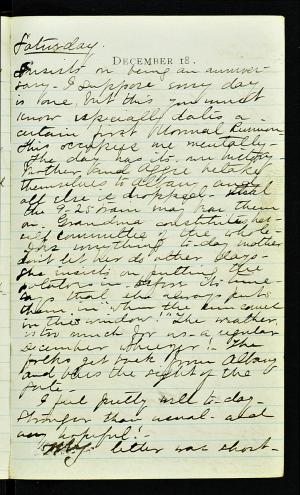 Saturday.
DECEMBER 18.
Insists on being an anniver-
sary. I suppose every day
is one, but this you must
know especially dates a
certain first Normal Reunion
This occupies me mentally.
The day has its own history.
Mother and Agnes betake
themselves to Albany, and
all else is dropped until
the 9.25 train may have them
on. Grandma constitutes her-
self committee of the whole.
does something to-day mother
don't let her do other days.
She insists on putting the
potatoes in before it's time
say that she always puts
them in when the sun comes
in the window!! The weather
is too much for me a regular
December whizzer! The
folks get back from Albany
and bless the sight of the
gate.
I feel pretty well to-day.
stronger than usual and
very hopeful!
My letter was short-